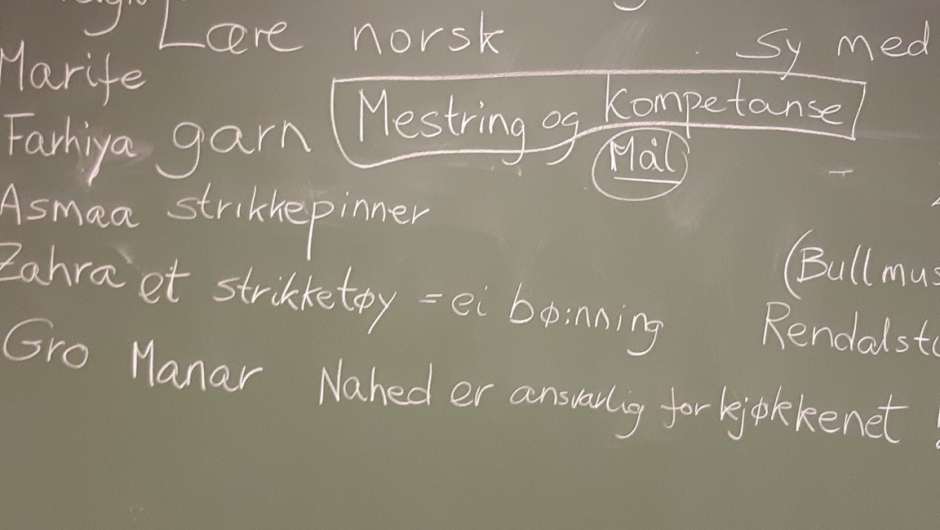 Lære norsk Sy med
Marife
Mestring og kompetanse
Farhiya garn
Mål
Asmaa strikkepinner
(Bullmus
Zahra et strikketøy = ei bø:nning
Rendalst
Gro Manar Nahed er ansvarlig for kjøkkenet